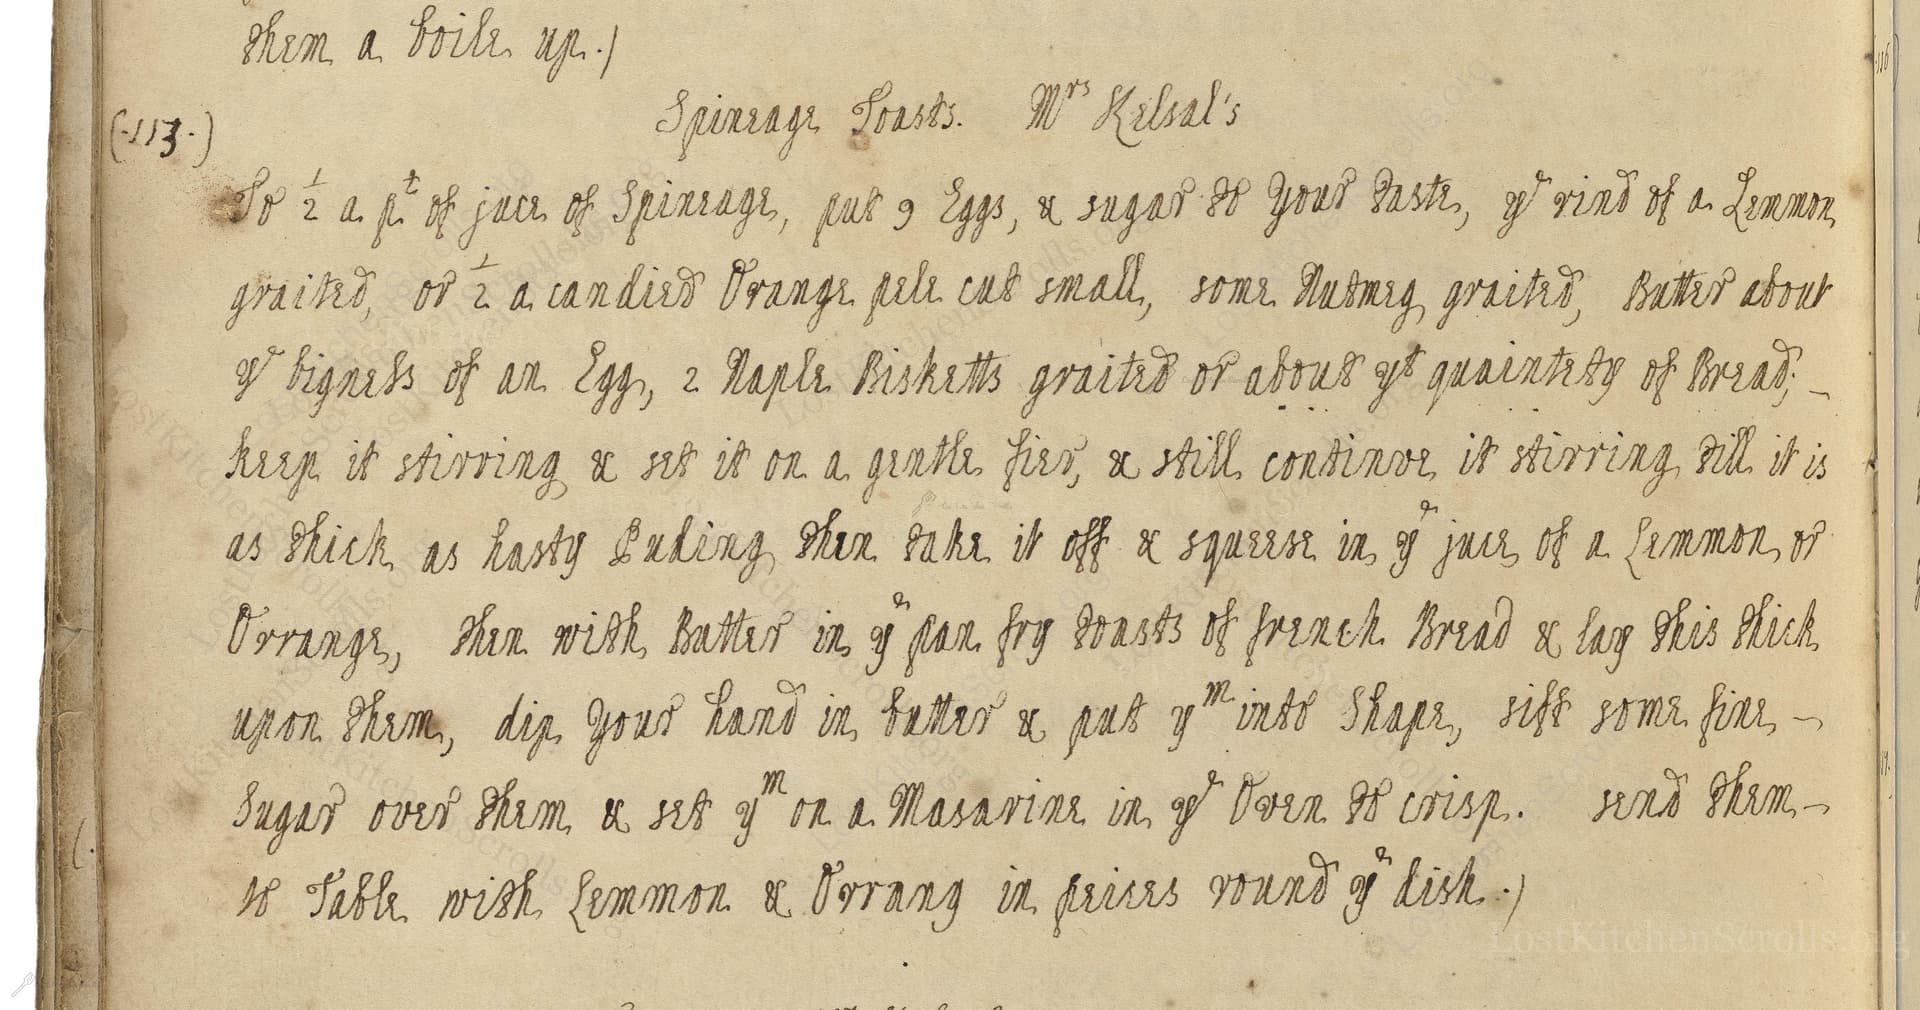 them a boile up.)
(.113.)
Spineage Toasts. Mrs Kelsal's
To 1/2 a pt of juce of Spineage, put 9 Eggs, & sugar to Your taste, ye rind of a Lemmon
graited, or 1/2 a candied Orange pele cut small, some Nutmeg graited, Butter about
ye bigness of an Egg, 2 Naple Bisketts graited or about yt quaintety of Bread; –
keep it stirring & set it on a gentle fier, & still continve it stirring till it is
as thick as hasty Puding then take it off & squeese in ye juce of a Lemmon or
Orrange, then with Butter in ye pan fry toasts of french Bread & lay this thick
upon them, dip Your hand in butter & put ym into Shape, sift some fine –
Sugar over them & set ym on a Masarine in ye Oven to crisp. send them –
to Table with Lemmon & Orrang in peices round ye dish.)
LostKitchenScrolls.org